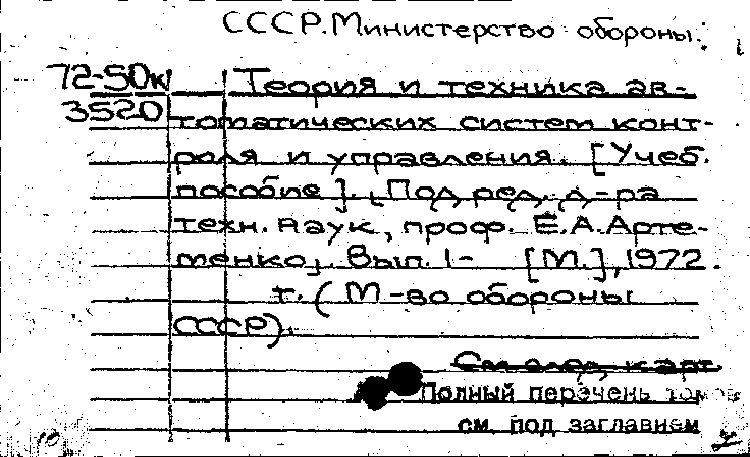 СССР. Министерство обороны.
72-50к Теория и техника ав-
3520 томатических систем конт-
роля и управления. [Учеб.
пособие]. [Под ред. д-ра
техн. наук, проф. Е.А.Арте-
менко, Вып. 1- [М.], 1972.
т. (М-во обороны
СССР).
См. след. карт.
Полный перечень томов
см. под заглавием